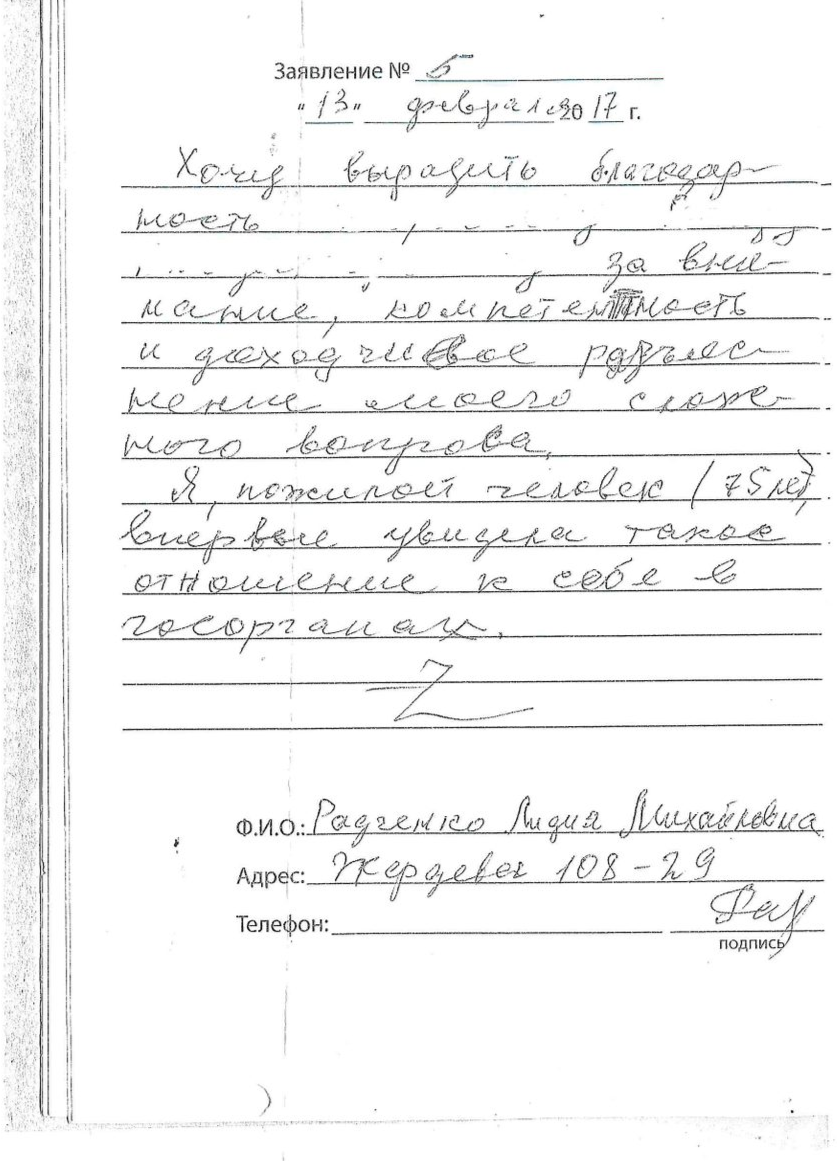 Заявление № 5
"13" февраля 2017 г.
Хочу выразить благодар-
ность
за вни-
мание, компетентность
и доходчивое разъяс-
нение моего слож-
ного вопроса.
Я, пожилой человек (75 лет),
впервые увидела такое
отношение к себе в
госорганах.
Z
Ф.И.О.: Радченко Лидия Михайловна
Адрес: Жердева 108-29
Телефон:
подпись